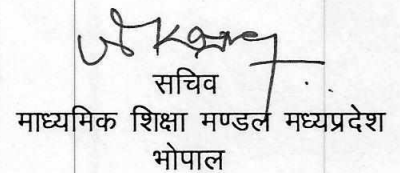 सचिव
माध्यमिक शिक्षा मण्डल मध्यप्रदेश
भोपाल